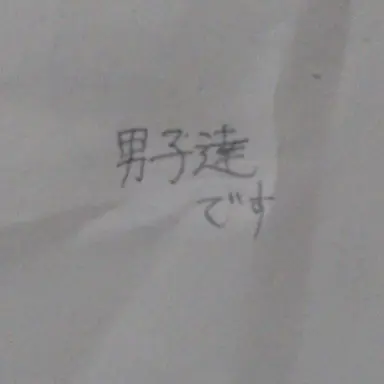 男子達
です